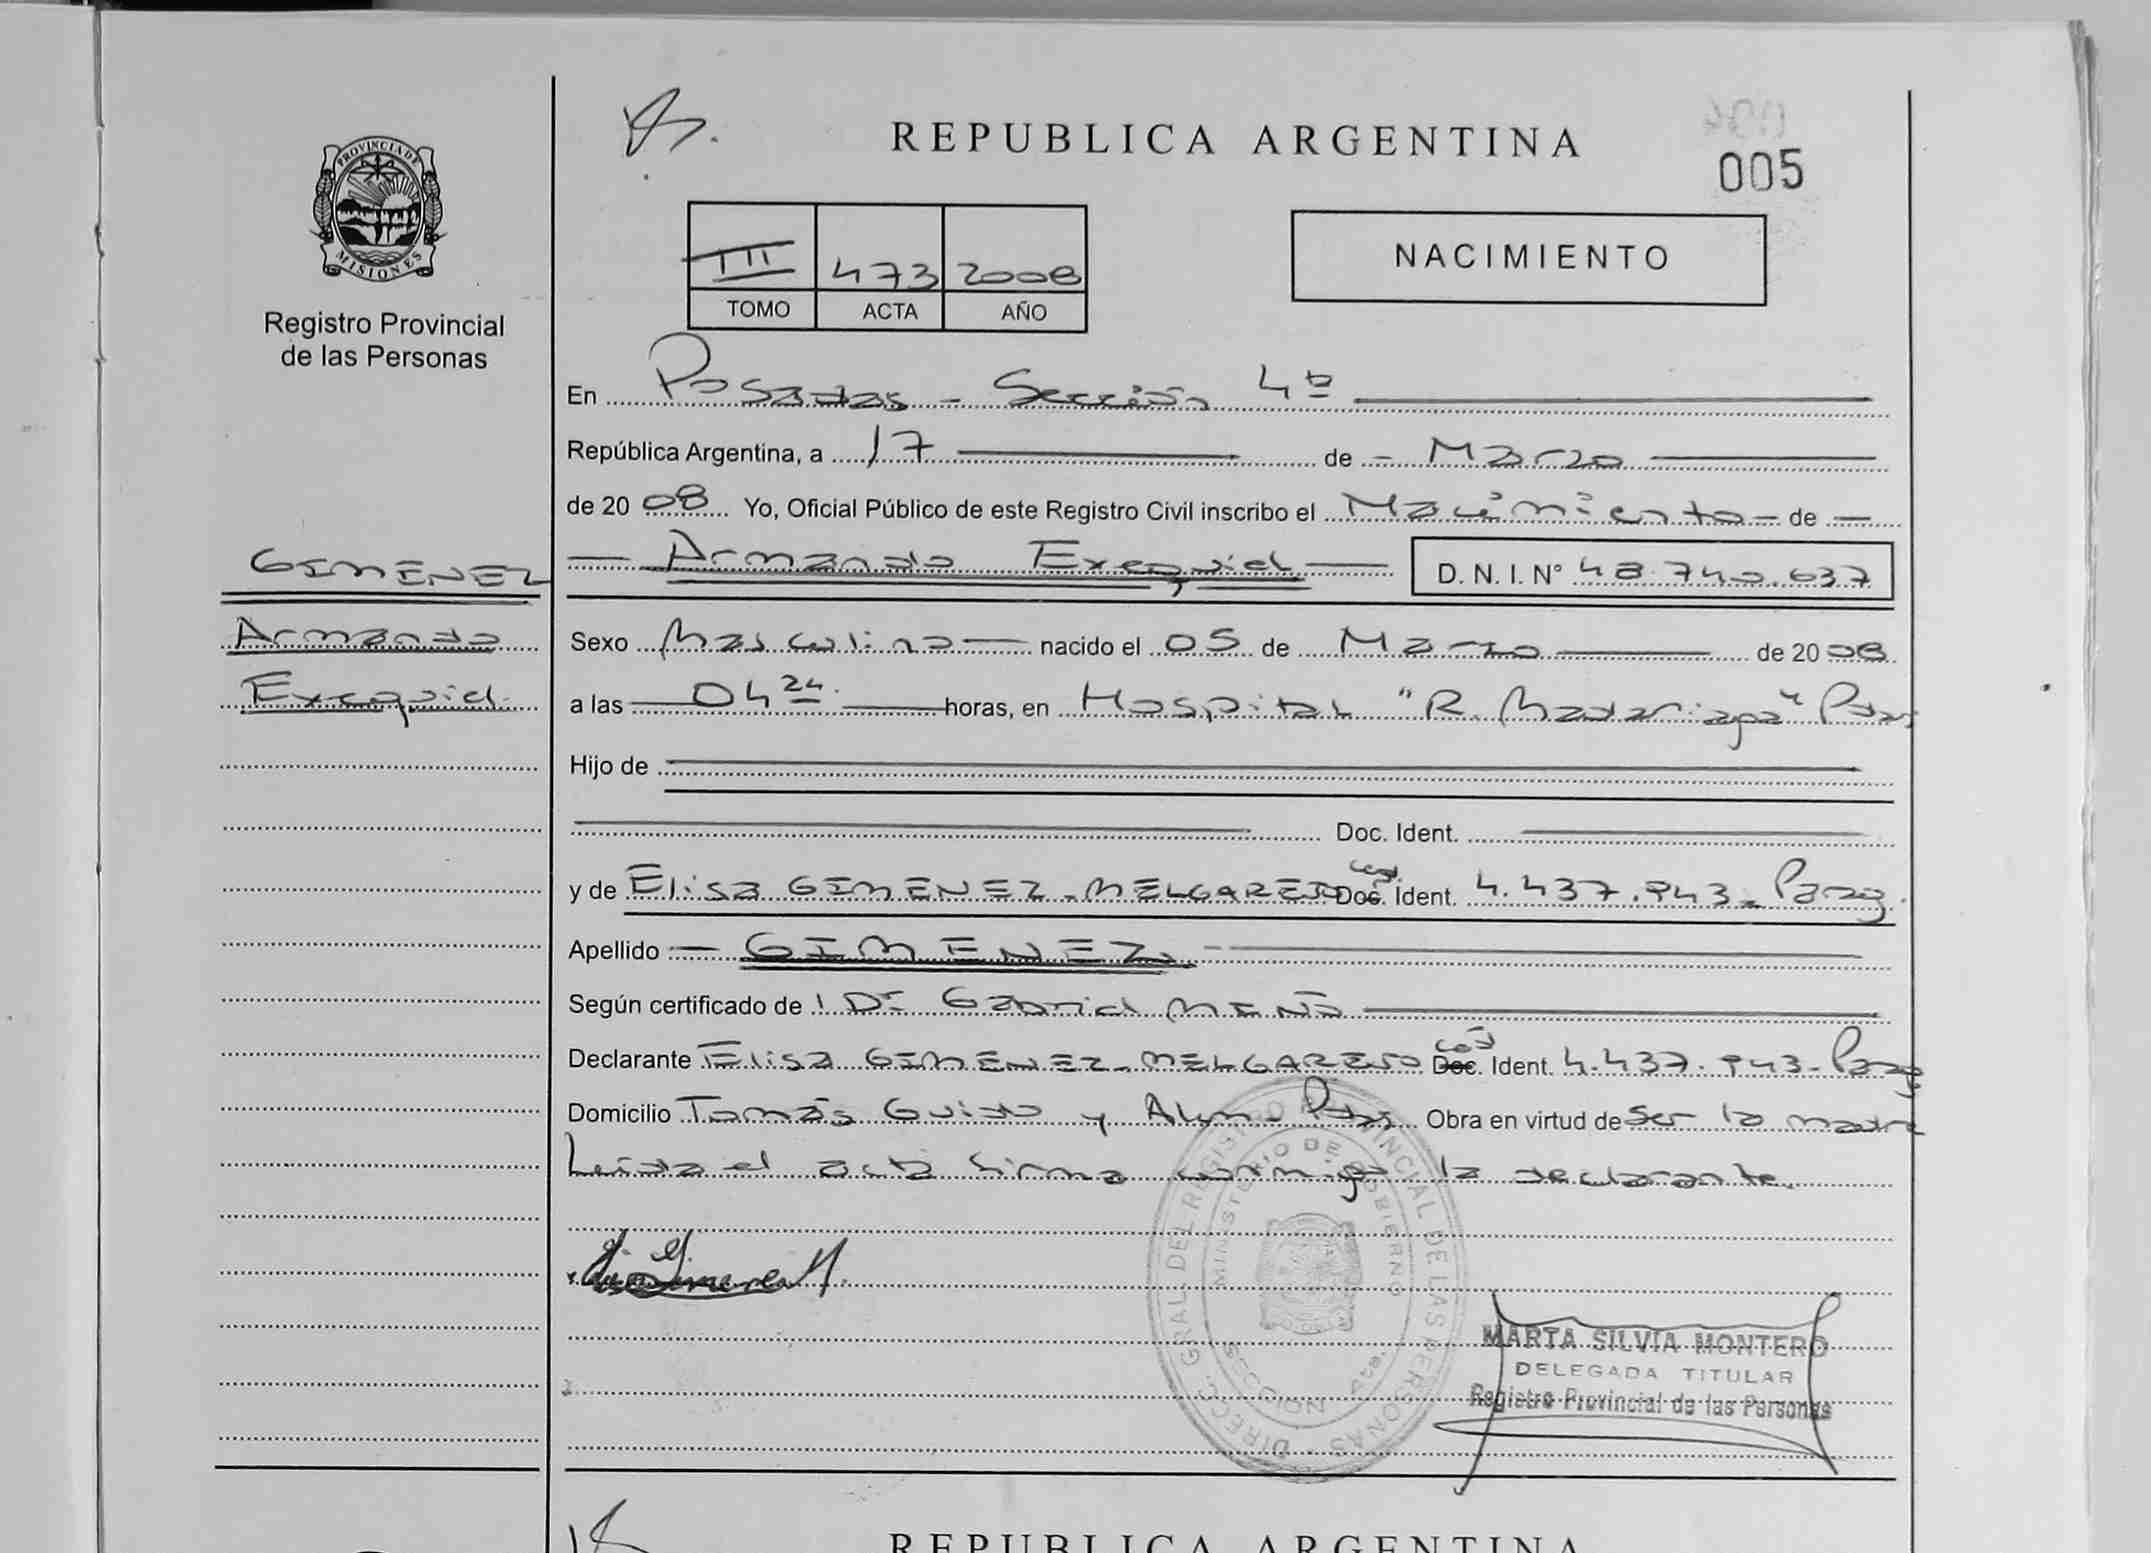 REPUBLICA ARGENTINA
005
PROVINCIA DE
MISIONES
Registro Provincial
de las Personas
III 473 2008
TOMO ACTA AÑO
NACIMIENTO
En Posadas - Sección 4ª
República Argentina, a 17 de - Marzo
de 2008 Yo, Oficial Público de este Registro Civil inscribo el Nacimiento - de -
Armando Exequiel D. N. I. N° 48.740.637
GIMENEZ
Armando
Exequiel
Sexo Masculino nacido el 05 de Marzo de 2008
a las 04 24 horas, en Hospital "R. Madariaga" Pdas
Hijo de
Doc. Ident.
y de Elisa GIMENEZ - MELGAREJO Doc. Ident. 4.437.943 - Parag.
Apellido GIMENEZ
Según certificado de Dr Gabriel MEÑO
Declarante Elisa GIMENEZ - MELGAREJO Doc. Ident. 4.437.943 - Parag
Domicilio Tomás Guido y Alem - Pdas Obra en virtud de ser la madre
Leída el acta firma conmigo la declarante.
DIRECC. GRAL. DEL REGISTRO PROVINCIAL DE LAS PERSONAS
MINISTERIO DE GOBIERNO
SECCION 4ta.
MARTA SILVIA MONTERO
DELEGADA TITULAR
Registro Provincial de las Personas
REPUBLICA ARGENTINA